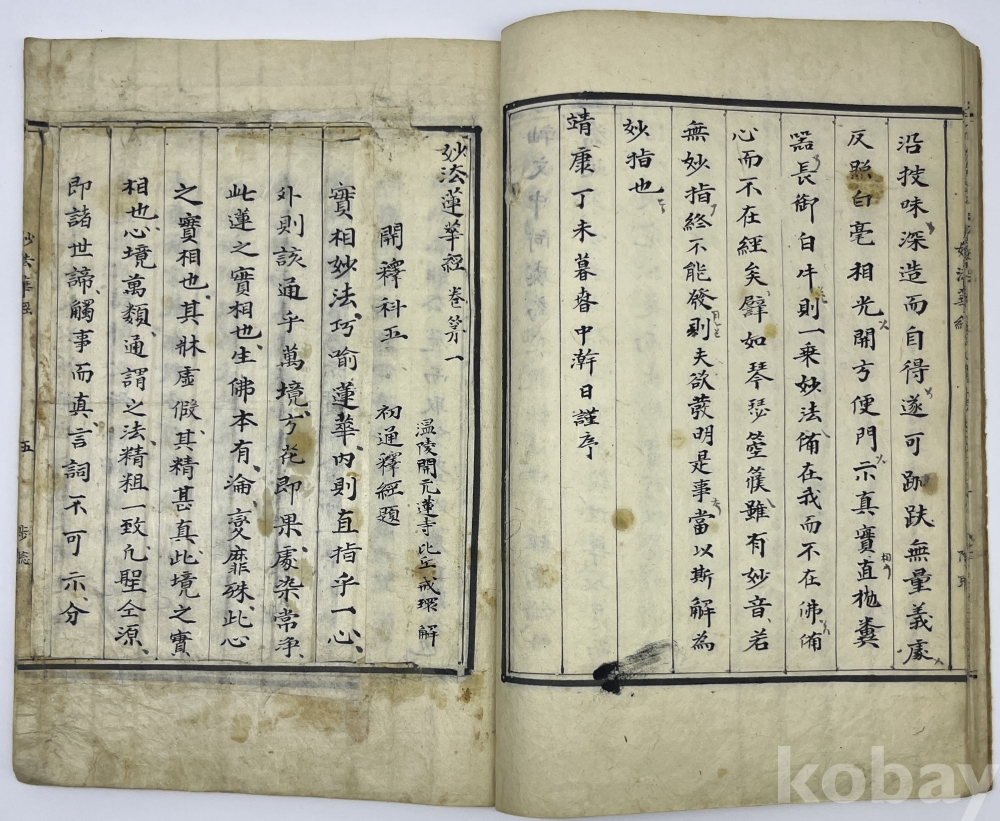 沿技味深造而自得遂可跏趺無量義處
反照白毫相光開方便門示真實直抛糞
器長御白牛則一乗妙法俻在我而不在佛俻
心而不在經矣譬如琴瑟箜篌雖有妙音若
無妙指終不能發則夫欲發明是事當以斯解為
妙指也
靖康丁未暮春中澣日謹序
妙法蓮華經 卷第一
溫陵開元蓮寺比丘戒環解
開釋科五 初通釋經題
實相妙法巧喻蓮華内則直指乎一心
外則該通乎萬境方花即果處染常淨
此蓮之實相也生佛本有淪變靡殊此心
之實相也其狀虛假其精甚真此境之實
相也心境萬類通謂之法精粗一致凢聖仝源
即諸世諦觸事而真言詞不可示分
五
kobay